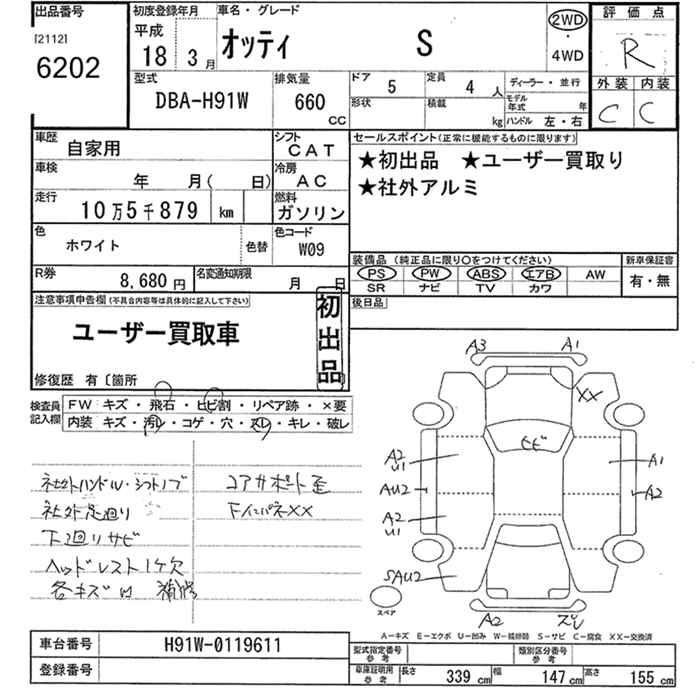 出品番号 初度登録年月 車名・グレード 2WD 評価点
[2112] 平成
6202 18 3月 オッティ S 4WD R
型式 排気量 ドア 5 定員 4人 ディーラー・並行 外装 内装
DBA-H91W 660 CC 形状 積載 kg モデル年式 年 C C
ハンドル 左・右
車歴 自家用 シフト CAT セールスポイント(正常に機能するものに限ります)
車検 年 月( 日) 冷房 AC ★初出品 ★ユーザー買取り
走行 10万5千879 km 燃料 ガソリン ★社外アルミ
色 ホワイト 色替 色コード W09
装備品 (純正品に限り○をつけてください) 新車保証書
R券 8,680円 名変通知期限 月 日 PS PW ABS エアB AW 有・無
SR ナビ TV カワ
注意事項申告欄(不具合内容等は具体的に記入して下さい) 初出品 後日品
ユーザー買取車
修復歴 有〔箇所
検査員記入欄 FW キズ・飛石・ヒビ割・リペア跡・×要
内装 キズ・汚レ・コゲ・穴・スレ・キレ・破レ
社外ハンドル・シフトノブ コアサポート歪
社外足廻り FインパネXX
下廻りサビ
ヘッドレスト1ケ欠
各キズ凹 補修
A3 A1
XX
ヒビ
A2 U1 A1
AU2 A2
A2 U1
SAU2
スペア
A2 スレ
A-キズ E-エクボ U-凹み W-補修跡 S-サビ C-腐食 XX-交換済
車台番号 H91W-0119611 型式指定番号 参考 類別区分番号 参考
登録番号 車庫証明用 参考 長さ 339 cm 幅 147 cm 高さ 155 cm